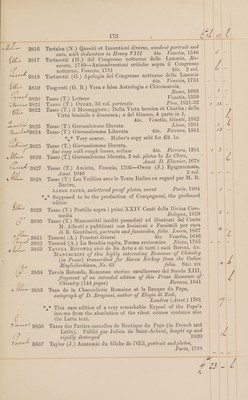 173
2816 Tartalea (N.) Quesiti et Inventioni diverse, woodcut portrait and
cuts, with dedication to Henry VIII 4to. Venetia, 1546
2817 Tartarotti (G.) del Congresso notturno delle Lammie, Ro-
vereto, 1749—Animadversioni critiche sopra il Congresso
notturno, Venezia, 1751 4to. 2 vol.
2818 Tartarotti (G.) Apologia del Congresso notturno delle Lammie
4to. Venezia, 1751
2819 Tasgresti (G. B.) Vera e falsa Astrologia e Chiromanzia,
Roma, 1683
2820 Tasso (T.) Lettere Venetia, 1559
2821 Tasso (T.) Opere, 33 vol. portraits Pisa, 1821-32
2822 Tasso (T.) il Messaggiero; Della Virtu heroica et Charita; della
Virtu feminile e donnesca; e del Giuoco, 4 parts in 1,
4to. Venetia, Giunti, 1582
2823 Tasso (T.) Gierusalemme liberata Parma, 1581
2824 Tasso (T.) Gierusalemme Liberata 4to. Ferrara, 1581
*** Very scarce. Heber's copy sold for £3. 1s.
2825 Tasso (T.) Gierusalemme liberata,
fine copy with rough leaves, vellum 4to. Ferrara, 1581
2826 Tasso (T.) Gierusalemme liberata, 2 vol. plates by Le Clerc,
Amst. D. Elzevier, 1678
2827 Tasso (T.) Aminta, Venezia, 1705—Ossa (J.) Egyptenaeren,
Amst. 1640 2 vol.
2828 Tasso (T.) Les Veillées avec le Texte Italien en regard par M. B.
Barère,
LARGE PAPER, unlettered proof plates, uncut Paris, 1804
*** Supposed to be the production of Compagnoni, the professed
editor.
2829 Tasso (T.) Postille sopra i primi XXIV Canti della Divina Com-
media Bologna, 1829
2830 Tasso (T.) Manoscritti inediti posseduti ed illustrati dal Conte
M. Alberti e pubblicati con Incisioni e Facsimili per cura
di R. Gentilucci, portraits and facsimiles, folio. Lucca, 1837
2831 Tassoni (A.) Pensieri diversi 4to. Venetia, 1636
2832 Tassoni (A.) La Secchia rapita, Poema eroicomico Pisa, 1765
2833 TAVOLA ROTONDA cioè de Re Arto e di tutti i suoi Baroni, &c.
MANUSCRIPT OF this highly interesting Romance of Chivalry
(in Prose) transcribed for Baron Kirkup from the Codice
Magliabecchiano, No. 68 folio. Sec. XIX
2834 Tavola Rotonda, Romanzo storico cavalleresco del Secolo XIII,
fragment of an intended edition of this Prose Romance of
Chivalry (144 pages) Ferrara, 1841
2835 Taxe de la Chancellerie Romaine et la Banque du Pape,
autograph of D. Brugiani, author of Elogio di Redi,
Londres (Amst.) 1701
*** This rare edition of a very remarkable Exposé of the Pope's
income from the absolution of the vilest crimes contains also
the Latin text.
2836 Taxes des Parties casuelles de Boutique du Pape (in French and
Latin). Publié par Julien de Saint-Acheul, bought up and
rapidly destroyed 1820
2837 Taylor (J.) Anatomie du Globe de l'Œil, portrait and plates,
Paris, 1738